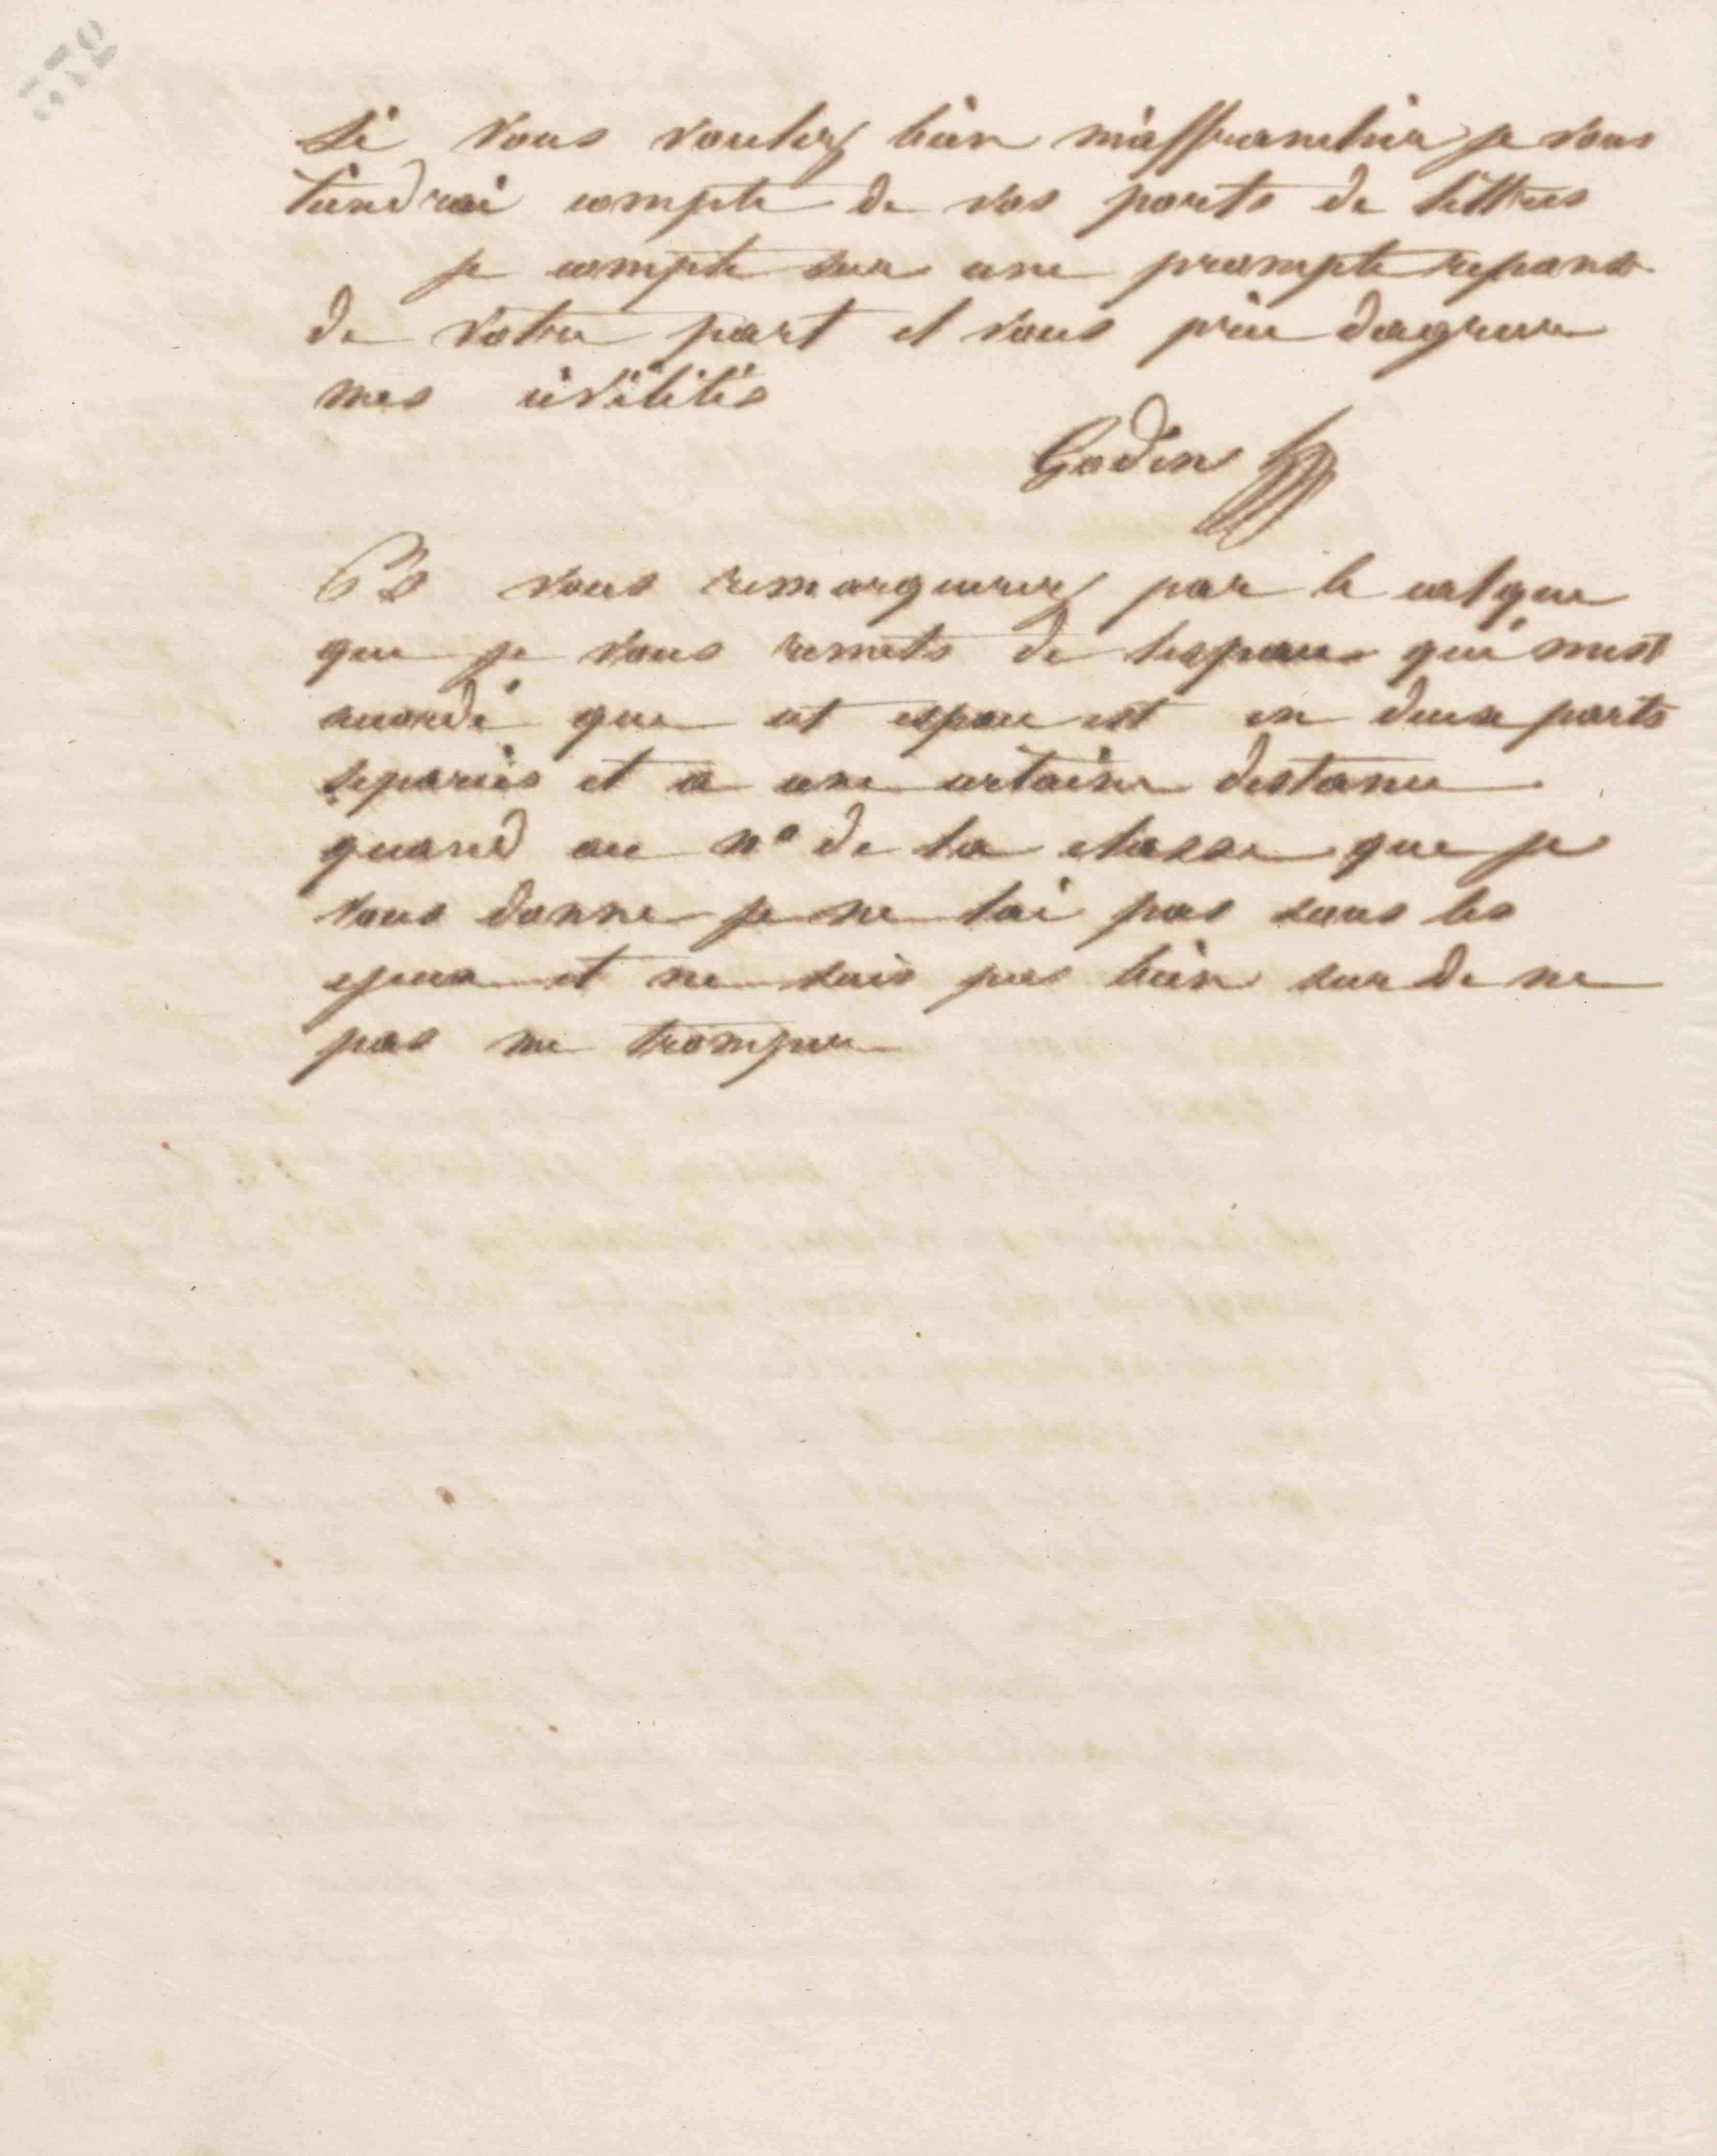 Si vous voulez bien m'affranchir je vous
tiendrai compte de vos ports de lettres
je compte sur une prompte reponse
de votre part et vous prie dagreer
mes civilités
Godin
PS vous remarquerez par le calque
que je vous remets de lespace qui mest
accordé que cet espace est en deux parts
separées et a une certaine distance
quand au no de la classe que je
vous donne je ne lai pas sous les
yeux et ne suis pas bien sur de ne
pas me tromper